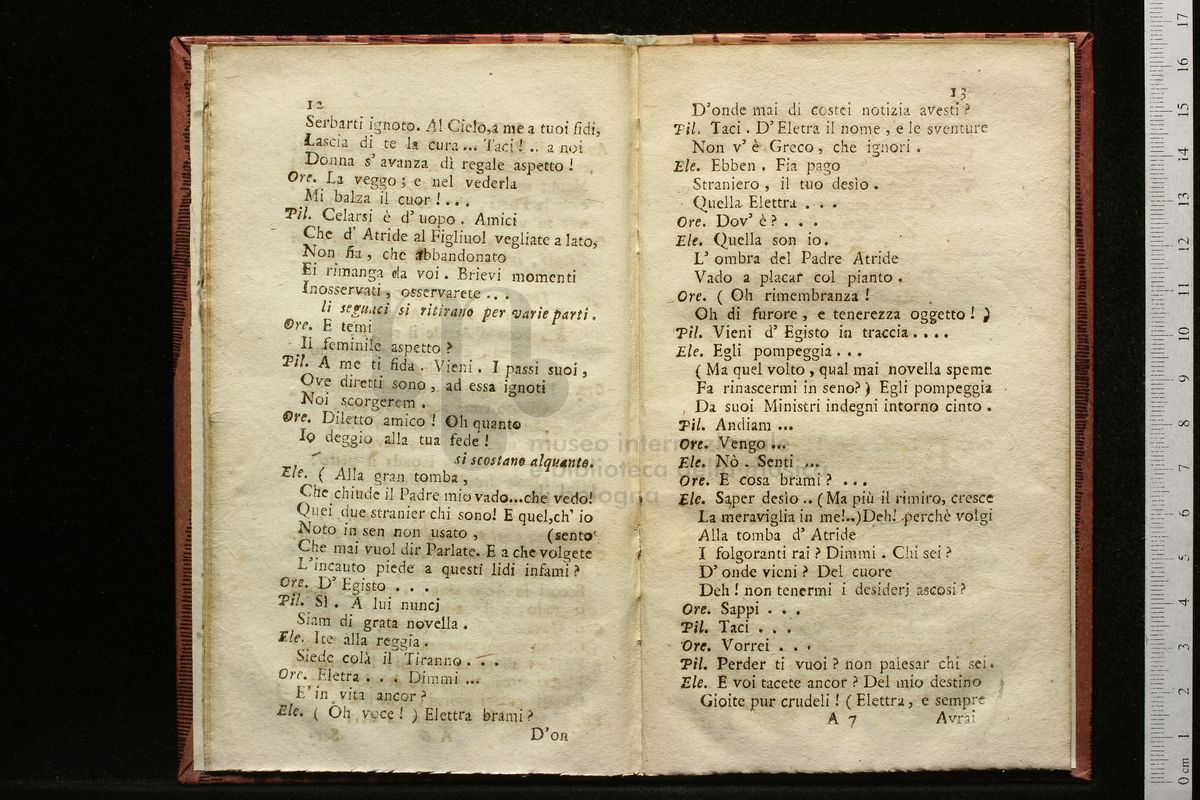 12
Serbarti ignoto. Al Cielo,a me a tuoi fidi,
Lascia di te la cura... Taci! .. a noi
Donna s' avanza dì regale aspetto !
Ore. La veggo ; e nel vederla
Mi balza il cuor ! . . .
Pil. Celarsi è d' uopo . Amici
Che d' Atride al Figliuol vegliate a lato,
Non fia , che abbandonato
Ei rimanga da voi . Brievi momenti
Inosservati , osservarete . . .
li seguaci si ritirano per varie parti .
Ore. E temi
Il feminile aspetto ?
Pil. A me ti fida . Vieni . I passi suoi ,
Ove diretti sono , ad essa ignoti
Noi scorgerem .
Ore. Diletto amico ! Oh quanto
Io deggio alla tua fede !
si scostano alquanto.
Ele. ( Alla gran tomba ,
Che chiude il Padre mio vado...che vedo!
Quei due stranier chi sono! E quel,ch' io
Noto in sen non usato , (sento
Che mai vuol dir Parlate. E a che volgete
L'incauto piede a questi lidi infami ?
Ore. D' Egisto . . .
Pil. Sì . A lui nuncj
Siam di grata novella .
Ele. Ite alla reggia .
Siede colà il Tiranno . . .
Ore. Eletra . . . Dimmi ...
E' in vita ancor ?
Ele. ( Oh voce ! ) Elettra brami ?
D'on
13
D'onde mai di costei notizia avesti ?
Pil. Taci . D' Eletra il nome , e le sventure
Non v' è Greco , che ignori .
Ele. Ebben . Fia pago
Straniero , il tuo desìo .
Quella Elettra . . .
Ore. Dov' è ? . . .
Ele. Quella son io .
L' ombra del Padre Atride
Vado a placar col pianto .
Ore. ( Oh rimembranza !
Oh di furore , e tenerezza oggetto ! )
Pil. Vieni d' Egisto in traccia . . . .
Ele. Egli pompeggia . . .
( Ma quel volto , qual mai novella speme
Fa rinascermi in seno? ) Egli pompeggia
Da suoi Ministri indegni intorno cinto .
Pil. Andiam ...
Ore. Vengo ...
Ele. Nò . Senti ...
Ore. E cosa brami ? . . .
Ele. Saper desìo .. ( Ma più il rimiro, cresce
La meraviglia in me!..)Deh! perchè volgi
Alla tomba d' Atride
I folgoranti rai ? Dimmi . Chi sei ?
D' onde vieni ? Del cuore
Deh ! non tenermi i desiderj ascosi ?
Ore. Sappi . . .
Pil. Taci . . .
Ore. Vorrei . . .
Pil. Perder ti vuoi ? non palesar chi sei .
Ele. E voi tacete ancor ? Del mio destino
Gioite pur crudeli ! ( Elettra , e sempre
A 7 Avrai
museo internazionale
e biblioteca della musica
di bologna
0 cm 1 2 3 4 5 6 7 8 9 10 11 12 13 14 15 16 17